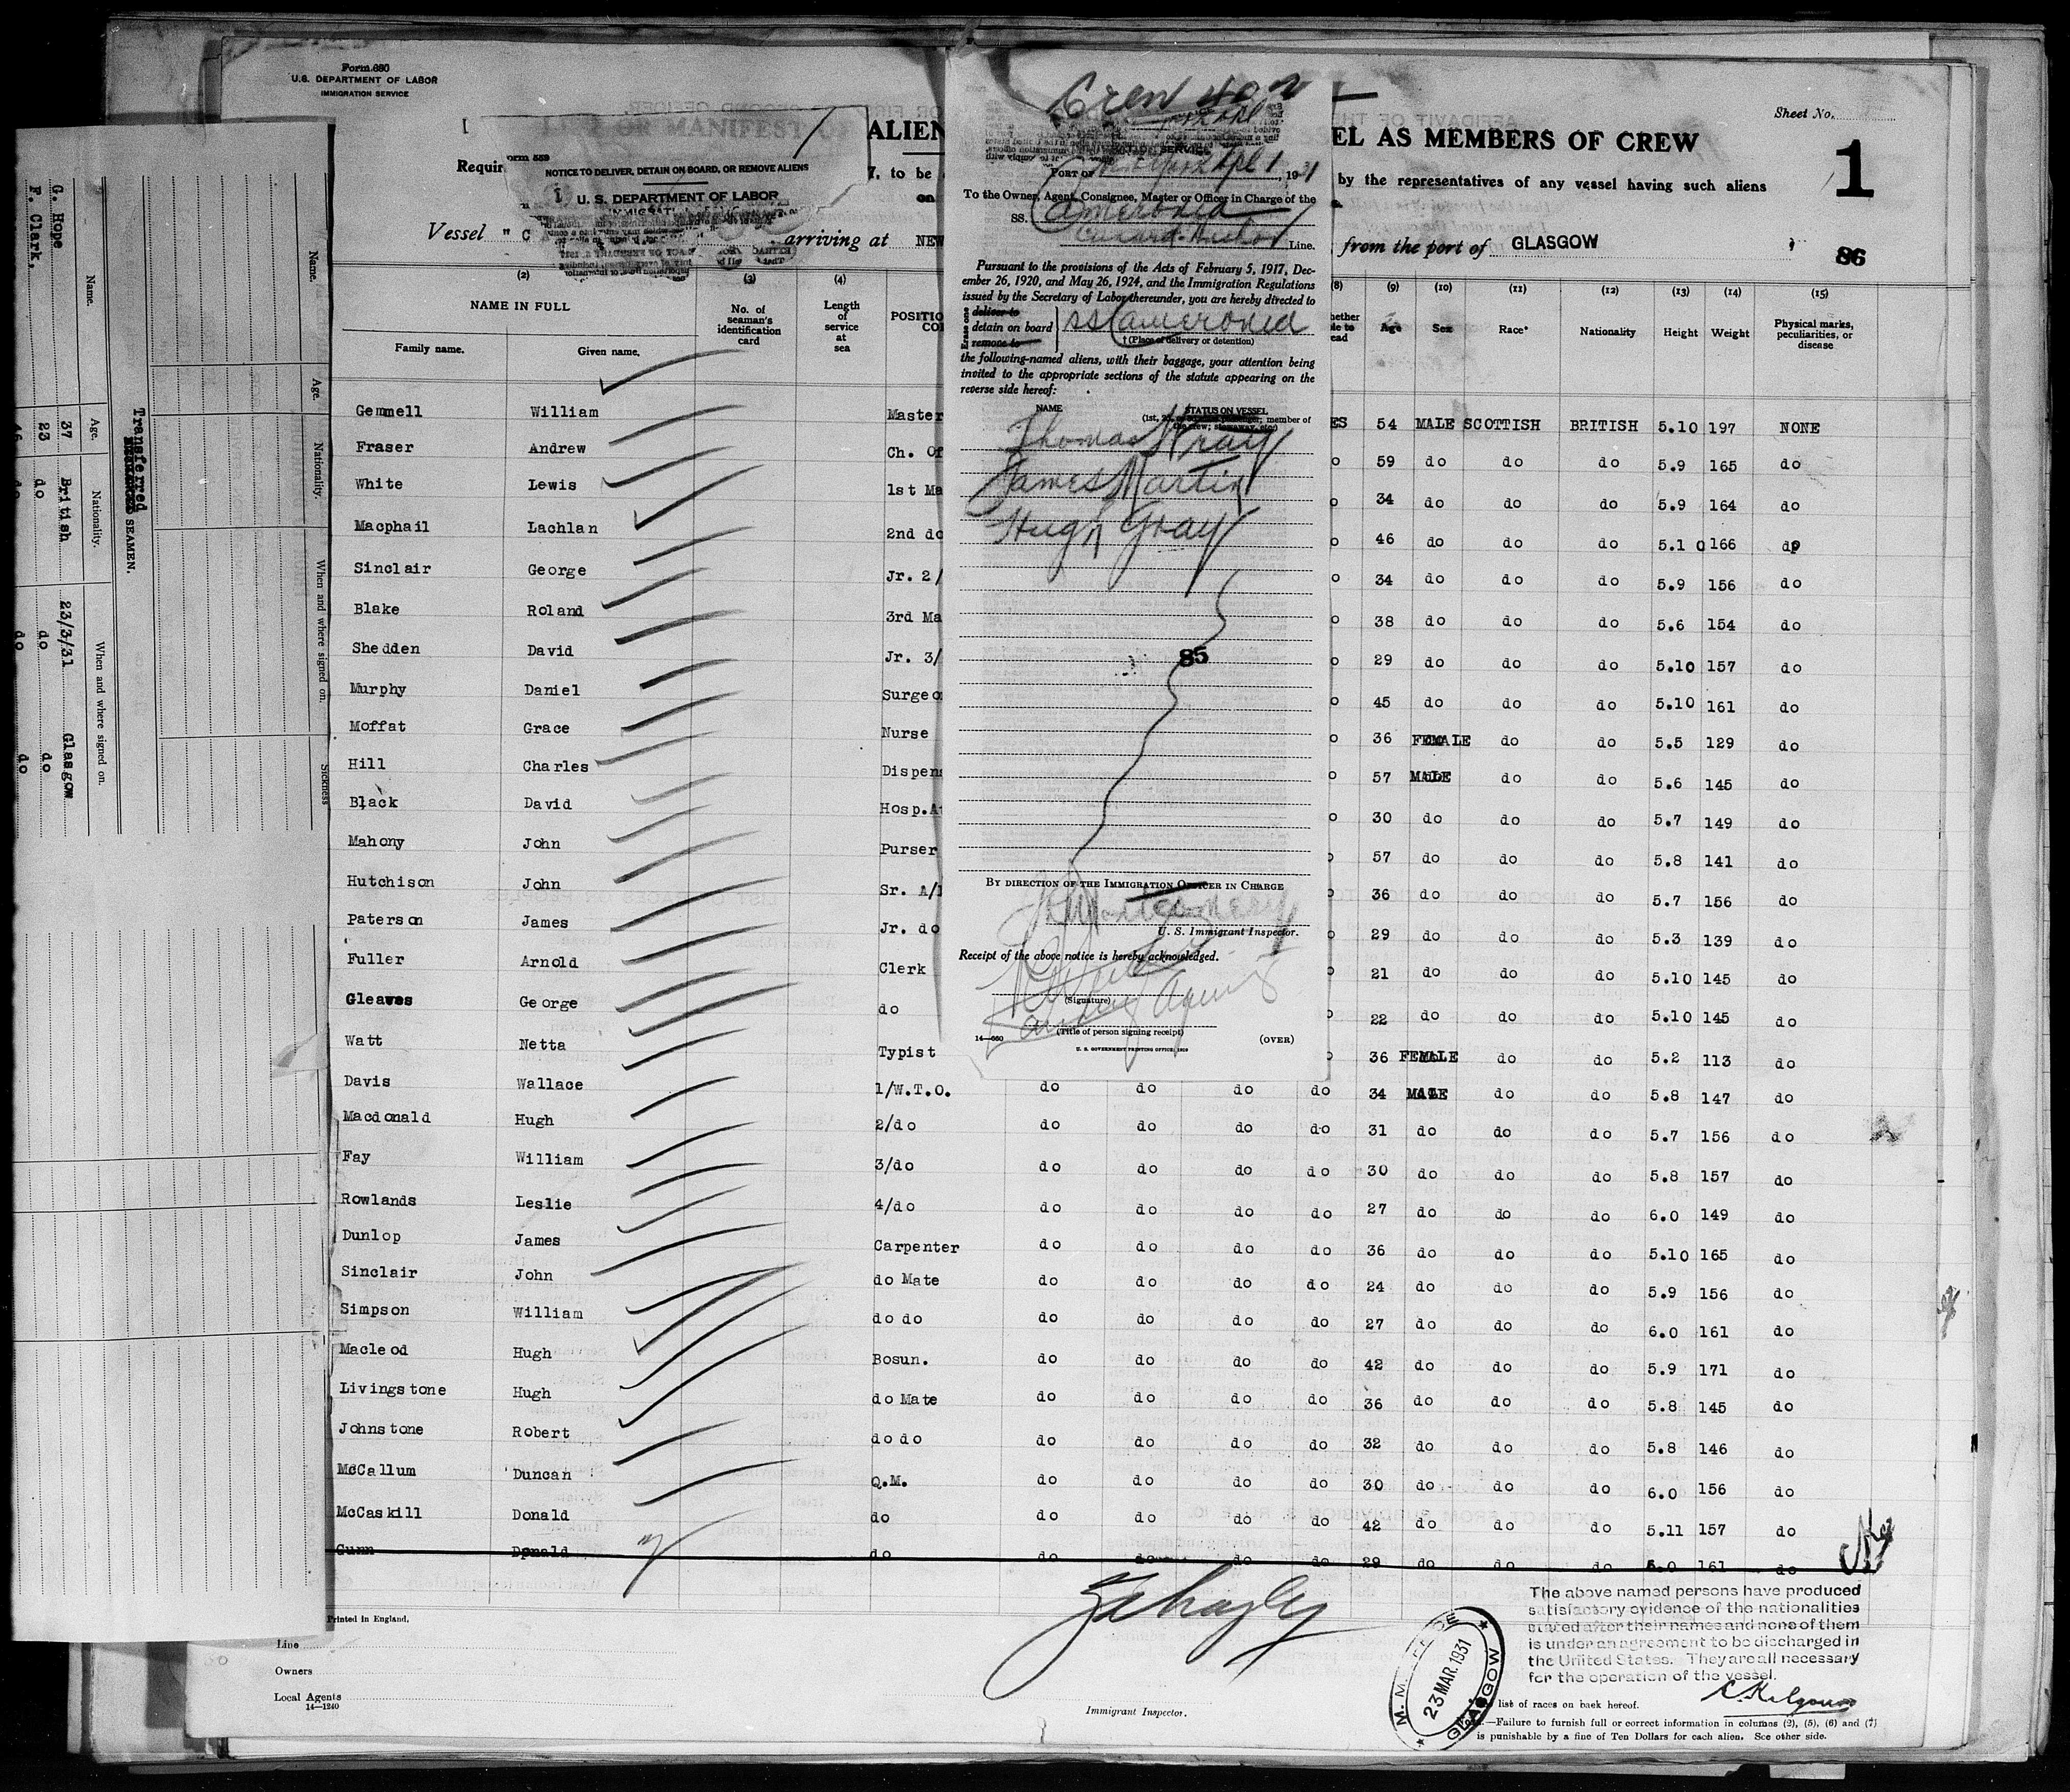 Form 680
U.S. DEPARTMENT OF LABOR
IMMIGRATION SERVICE
OR MANIFEST OF ALIEN
EL AS MEMBERS OF CREW
Sheet No.
1
86
by the representatives of any vessel having such aliens
to be
on
Vessel "C
arriving at NEW
from the port of GLASGOW
Form 559
NOTICE TO DELIVER, DETAIN ON BOARD, OR REMOVE ALIENS
U. S. DEPARTMENT OF LABOR
Crew
PORT OF Apl 1, 1931
To the Owner, Agent, Consignee, Master or Officer in Charge of the
SS. Cameronia
Line.
Pursuant to the provisions of the Acts of February 5, 1917, Dec-
ember 26, 1920, and May 26, 1924, and the Immigration Regulations
issued by the Secretary of Labor thereunder, you are hereby directed to
Erase one
deliver to
detain on board
remove to
SS Cameronia
† (Place of delivery or detention)
the following-named aliens, with their baggage, your attention being
invited to the appropriate sections of the statute appearing on the
reverse side hereof:
NAME STATUS ON VESSEL
member of
Thomas Gray
James Martin
Hugh Gray
85
BY DIRECTION OF THE IMMIGRATION OFFICER IN CHARGE
U. S. Immigrant Inspector.
Receipt of the above notice is hereby acknowledged.
(Signature)
(Title of person signing receipt)
14—660 (OVER)
U. S. GOVERNMENT PRINTING OFFICE
(2) (3) (4) (8) (9) (10) (11) (12) (13) (14) (15)
NAME IN FULL
Family name. Given name.
No. of seaman's identification card
Length of service at sea
POSITIO
Age Sex Race* Nationality Height Weight Physical marks, peculiarities, or disease
Gemmell William Master ES 54 MALE SCOTTISH BRITISH 5.10 197 NONE
Fraser Andrew Ch. Of 59 do do do 5.9 165 do
White Lewis 1st Ma 34 do do do 5.9 164 do
Macphail Lachlan 2nd do 46 do do do 5.10 166 do
Sinclair George Jr. 2/ 34 do do do 5.9 156 do
Blake Roland 3rd Ma 38 do do do 5.6 154 do
Shedden David Jr. 3/ 29 do do do 5.10 157 do
Murphy Daniel Surgeo 45 do do do 5.10 161 do
Moffat Grace Nurse 36 FEMALE do do 5.5 129 do
Hill Charles Dispens 57 MALE do do 5.6 145 do
Black David Hosp.At 30 do do do 5.7 149 do
Mahony John Purser 57 do do do 5.8 141 do
Hutchison John Sr. A/ 36 do do do 5.7 156 do
Paterson James Jr. do 29 do do do 5.3 139 do
Fuller Arnold Clerk 21 do do do 5.10 145 do
Gleaves George do 22 do do do 5.10 145 do
Watt Netta Typist 36 FEMALE do do 5.2 113 do
Davis Wallace 1/W.T.O. do do do do 34 MALE do do 5.8 147 do
Macdonald Hugh 2/do do do do do 31 do do do 5.7 156 do
Fay William 3/do do do do do 30 do do do 5.8 157 do
Rowlands Leslie 4/do do do do do 27 do do do 6.0 149 do
Dunlop James Carpenter do do do do 36 do do do 5.10 165 do
Sinclair John do Mate do do do do 24 do do do 5.9 156 do
Simpson William do do do do do do 27 do do do 6.0 161 do
Macleod Hugh Bosun. do do do do 42 do do do 5.9 171 do
Livingstone Hugh do Mate do do do do 36 do do do 5.8 145 do
Johnstone Robert do do do do do do 32 do do do 5.8 146 do
McCallum Duncan Q.M. do do do do 30 do do do 6.0 156 do
McCaskill Donald do do do do do 42 do do do 5.11 157 do
Gunn Donald do do do do do 29 do do do 6.0 161 do
Printed in England.
Line
Owners
Local Agents
14—1240
Immigrant Inspector.
23 MAR. 1931
GLASGOW
The above named persons have produced
satisfactory evidence of the nationalities
stated after their names and none of them
is under an agreement to be discharged in
the United States. They are all necessary
for the operation of the vessel.
list of races on back hereof.
—Failure to furnish full or correct information in columns (2), (5), (6) and (7)
is punishable by a fine of Ten Dollars for each alien. See other side.
Name. Age. Nationality. When and where signed on. Sickness
Transferred SEAMEN.
Name. Age. Nationality. When and where signed on.
G. Hope 37 British 23/3/31 Glasgow
P. Clark. 23 do do do